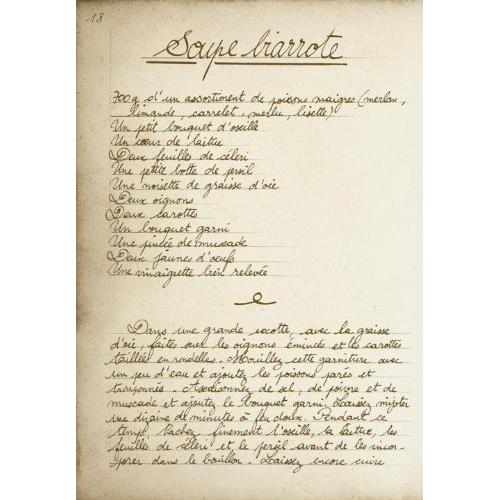 18
Soupe biarrote
700 g d'un assortiment de poissons maigres (merlan,
limande, carrelet, merlu, lisette)
Un petit bouquet d'oseille
Un cœur de laitue
Deux feuilles de céleri
Une petite botte de persil
Une noisette de graisse d'oie
Deux oignons
Deux carottes
Un bouquet garni
Une pincée de muscade
Deux jaunes d'oeufs
Une vinaigrette bien relevée
Dans une grande cocotte, avec la graisse
d'oie, faites suer les oignons émincés et les carottes
taillées en rondelles. Mouillez cette garniture avec
un peu d'eau et ajoutez les poissons parés et
tronçonnés. Assaisonnez de sel, de poivre et de
muscade et ajoutez le bouquet garni. Laissez mijoter
une dizaine de minutes à feu doux. Pendant ce
temps, hachez finement l'oseille, la laitue, les
feuilles de céleri et le persil avant de les incor-
porer dans le bouillon. Laissez encore cuire